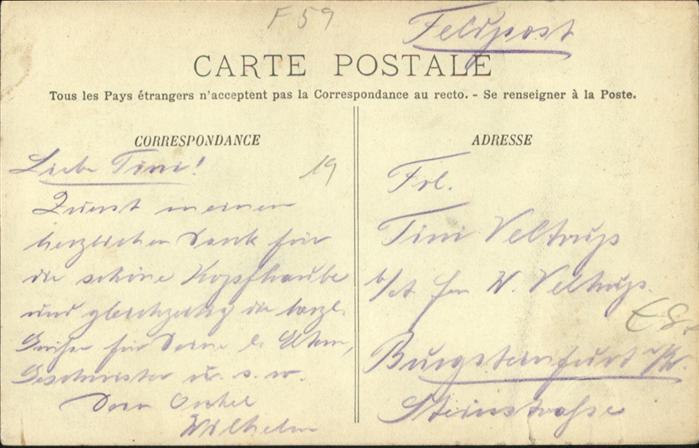 F 59
Feldpost
CARTE POSTALE
Tous les Pays étrangers n'acceptent pas la Correspondance au recto. - Se renseigner à la Poste.
CORRESPONDANCE
Liebe Tini!
19
Zuerst meinen
herzlichen Dank für
die schöne Kopfhaube
und gleichzeitig die herzl.
Grüße für Deine l. Eltern,
Geschwister u. s. w.
Dein Onkel
Wilhelm
ADRESSE
Frl.
Tini Veltrup
W. Veltrup.
Burgsteinfurt i/W.
Steinstraße